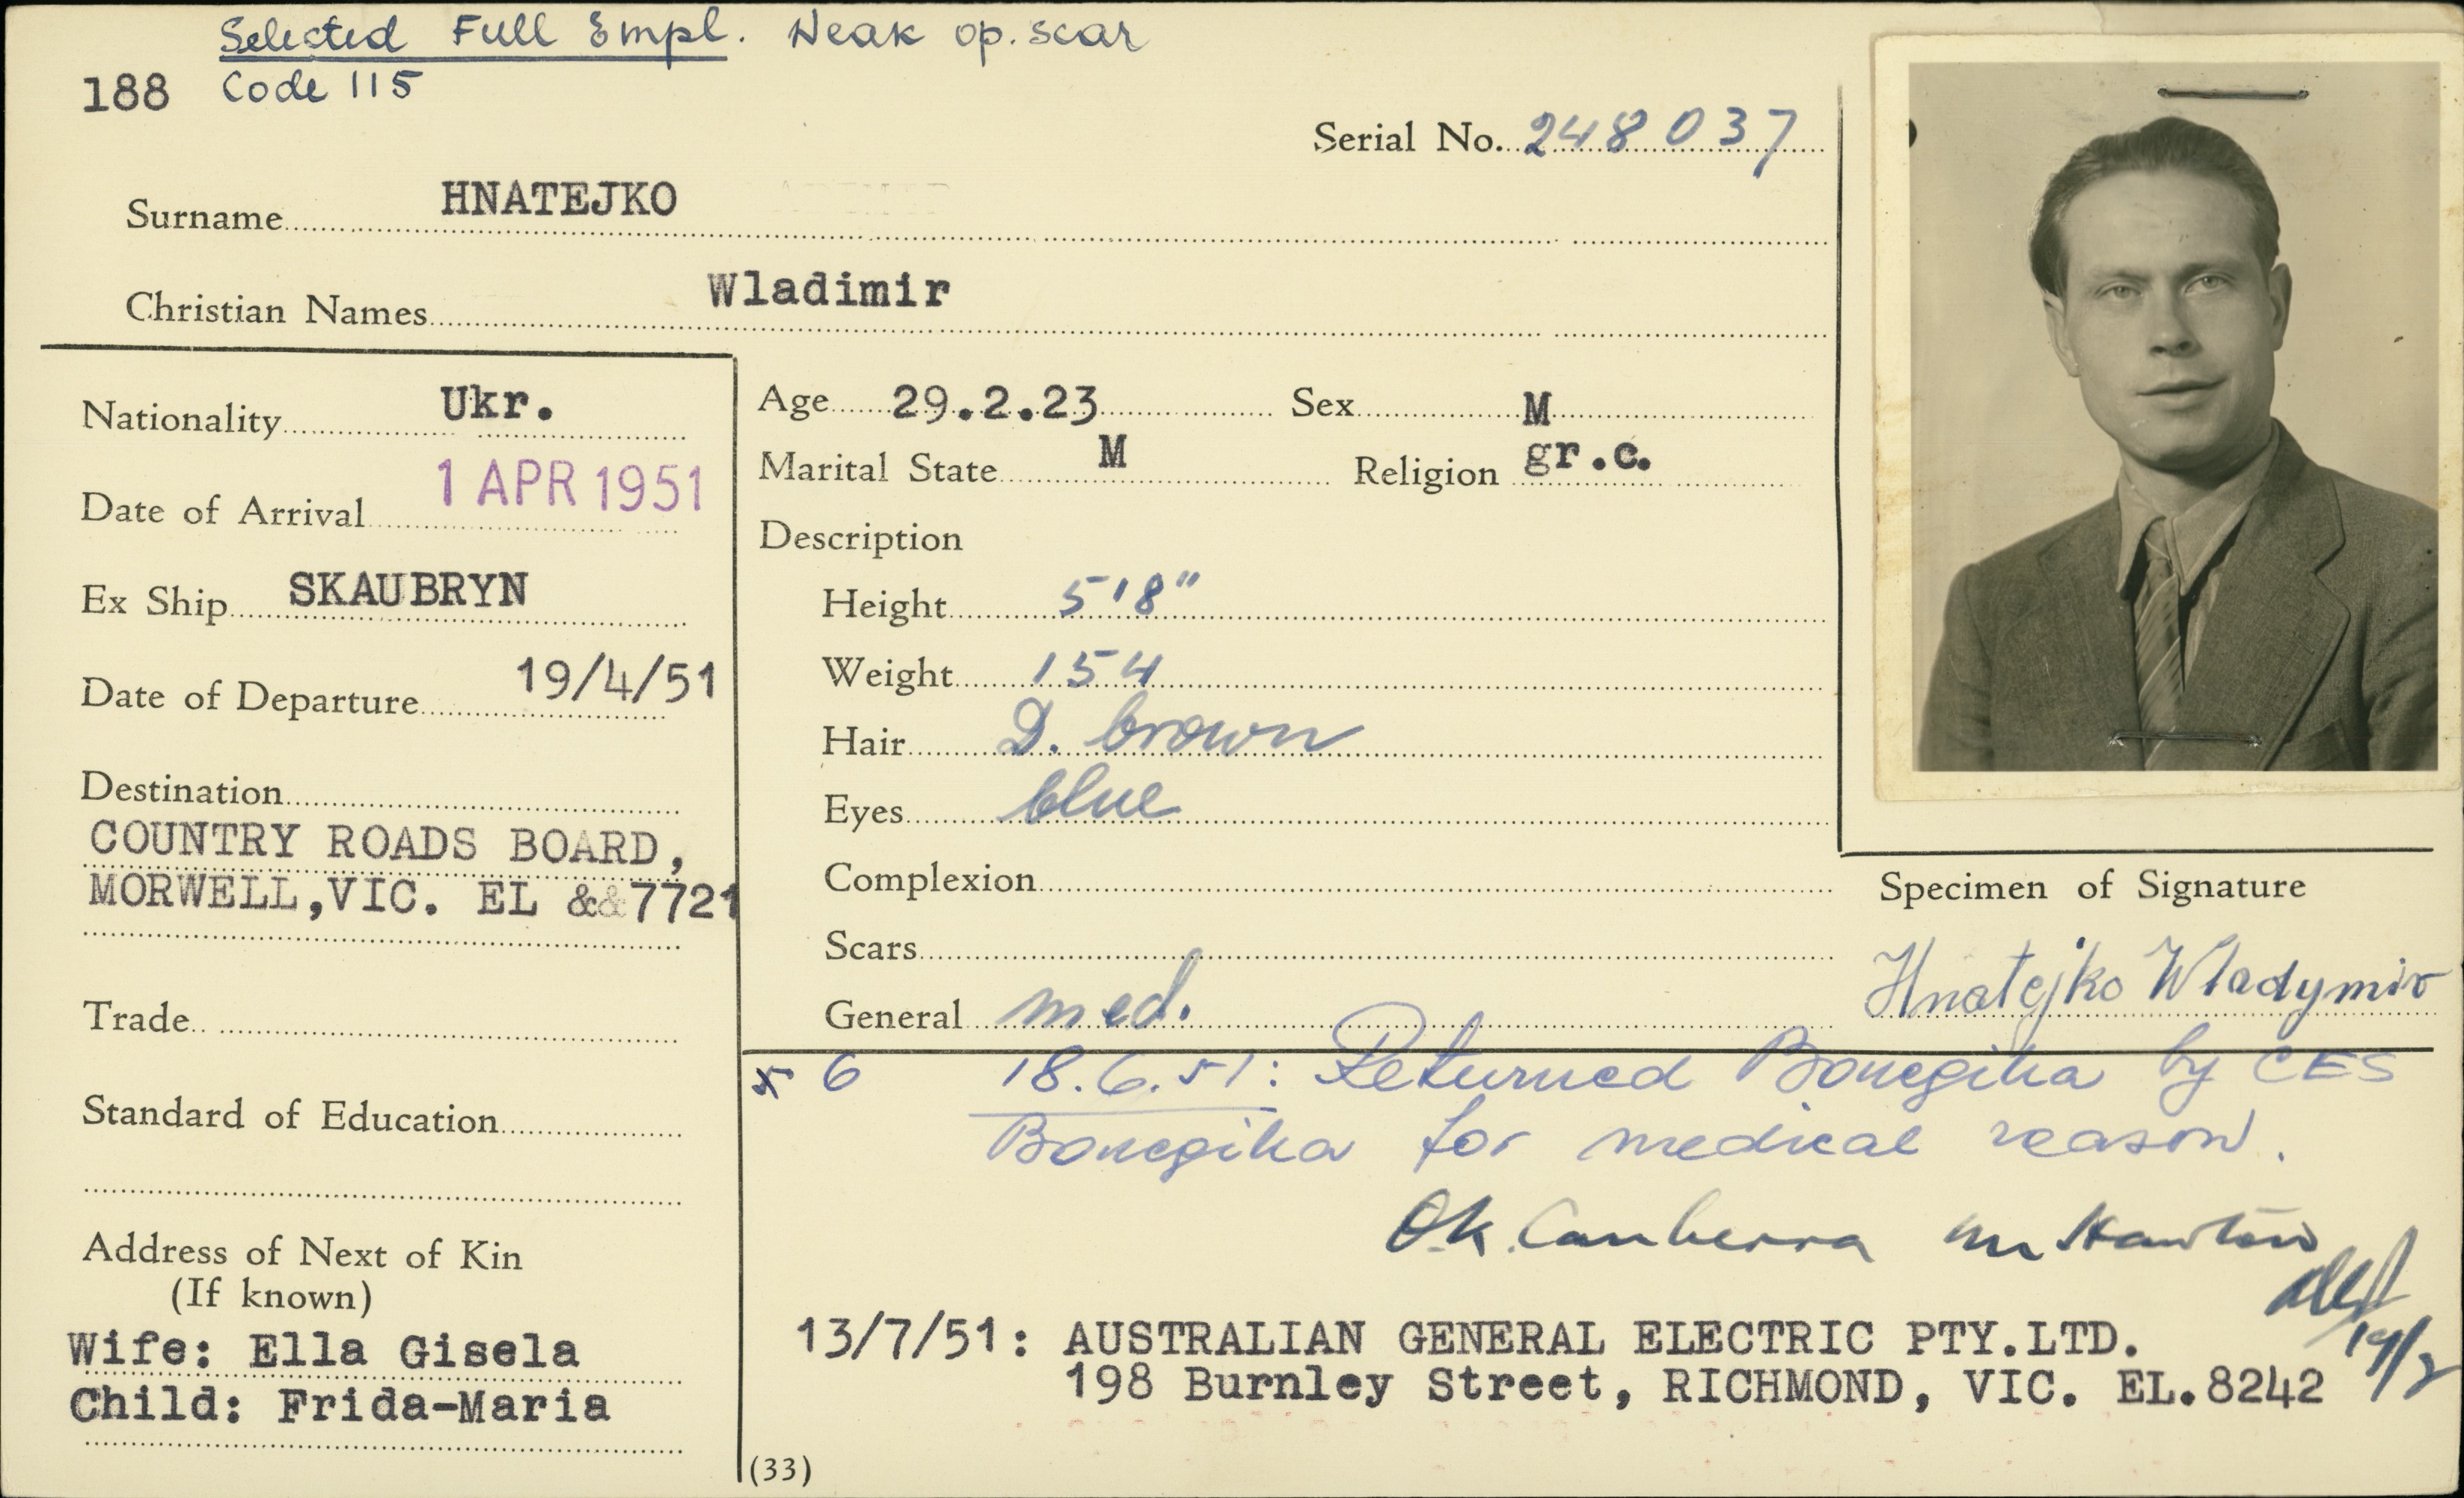 Selected Full Empl. Weak op. scar
188 Code 115
Serial No. 248037
Surname HNATEJKO
Christian Names Wladimir
Nationality Ukr.
Date of Arrival 1 APR 1951
Ex Ship SKAUBRYN
Date of Departure 19/4/51
Destination
COUNTRY ROADS BOARD,
MORWELL,VIC. EL &&7721
Trade
Standard of Education
Address of Next of Kin
(If known)
Wife: Ella Gisela
Child: Frida-Maria
Age 29.2.23 Sex M
Marital State M Religion gr.c.
Description
Height 5'8"
Weight 154
Hair D. brown
Eyes blue
Complexion
Scars
General med.
Specimen of Signature
Hnatejko Wladymir
x 6 18.6.51: Returned Bonegilla by CES
Bonegilla for medical reason.
O.K. Canberra
13/7/51: AUSTRALIAN GENERAL ELECTRIC PTY.LTD.
198 Burnley Street, RICHMOND, VIC. EL.8242
(33)